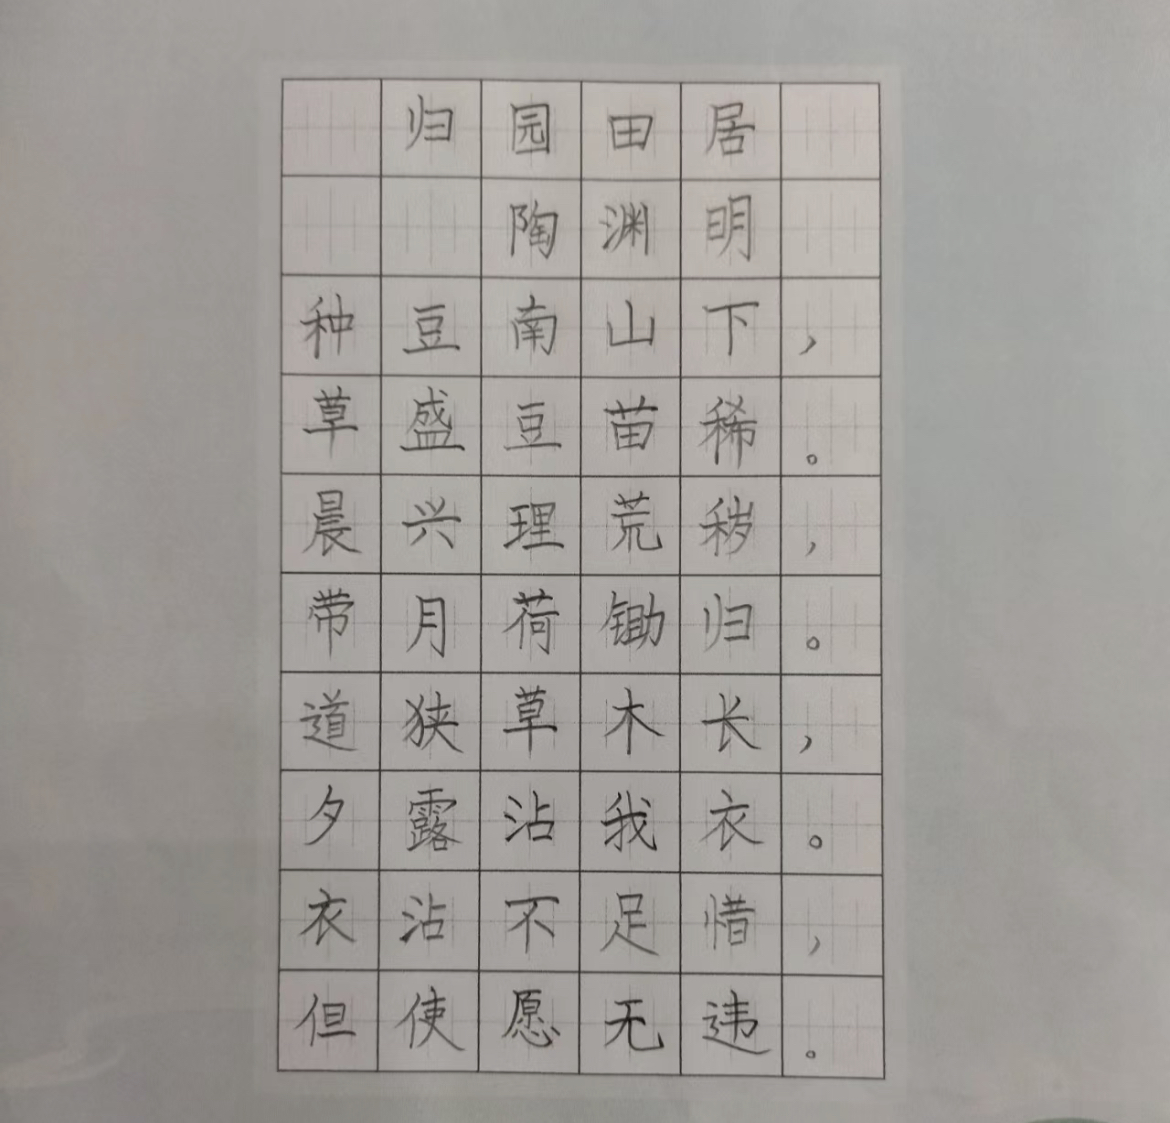 归园田居
陶渊明
种豆南山下，
草盛豆苗稀。
晨兴理荒秽，
带月荷锄归。
道狭草木长，
夕露沾我衣。
衣沾不足惜，
但使愿无违。